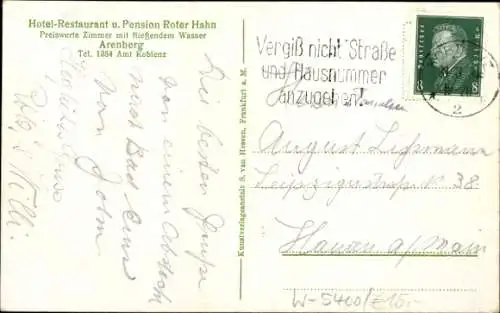 Hotel-Restaurant u. Pension Roter Hahn
Preiswerte Zimmer mit fließendem Wasser
Arenberg
Tel. 1384 Amt Koblenz
Die besten Grüße
von einem Abstech
nach Bad Ems
von
Willi.
Kunstverlagsanstalt S. van Hessen, Frankfurt a. M.
Vergiß nicht Straße
und Hausnummer
anzugeben!
DEUTSCHES REICH
8 8
2
August
Leipzigerstraße N 38.
Hanau a/Main
W-5400/£15,-